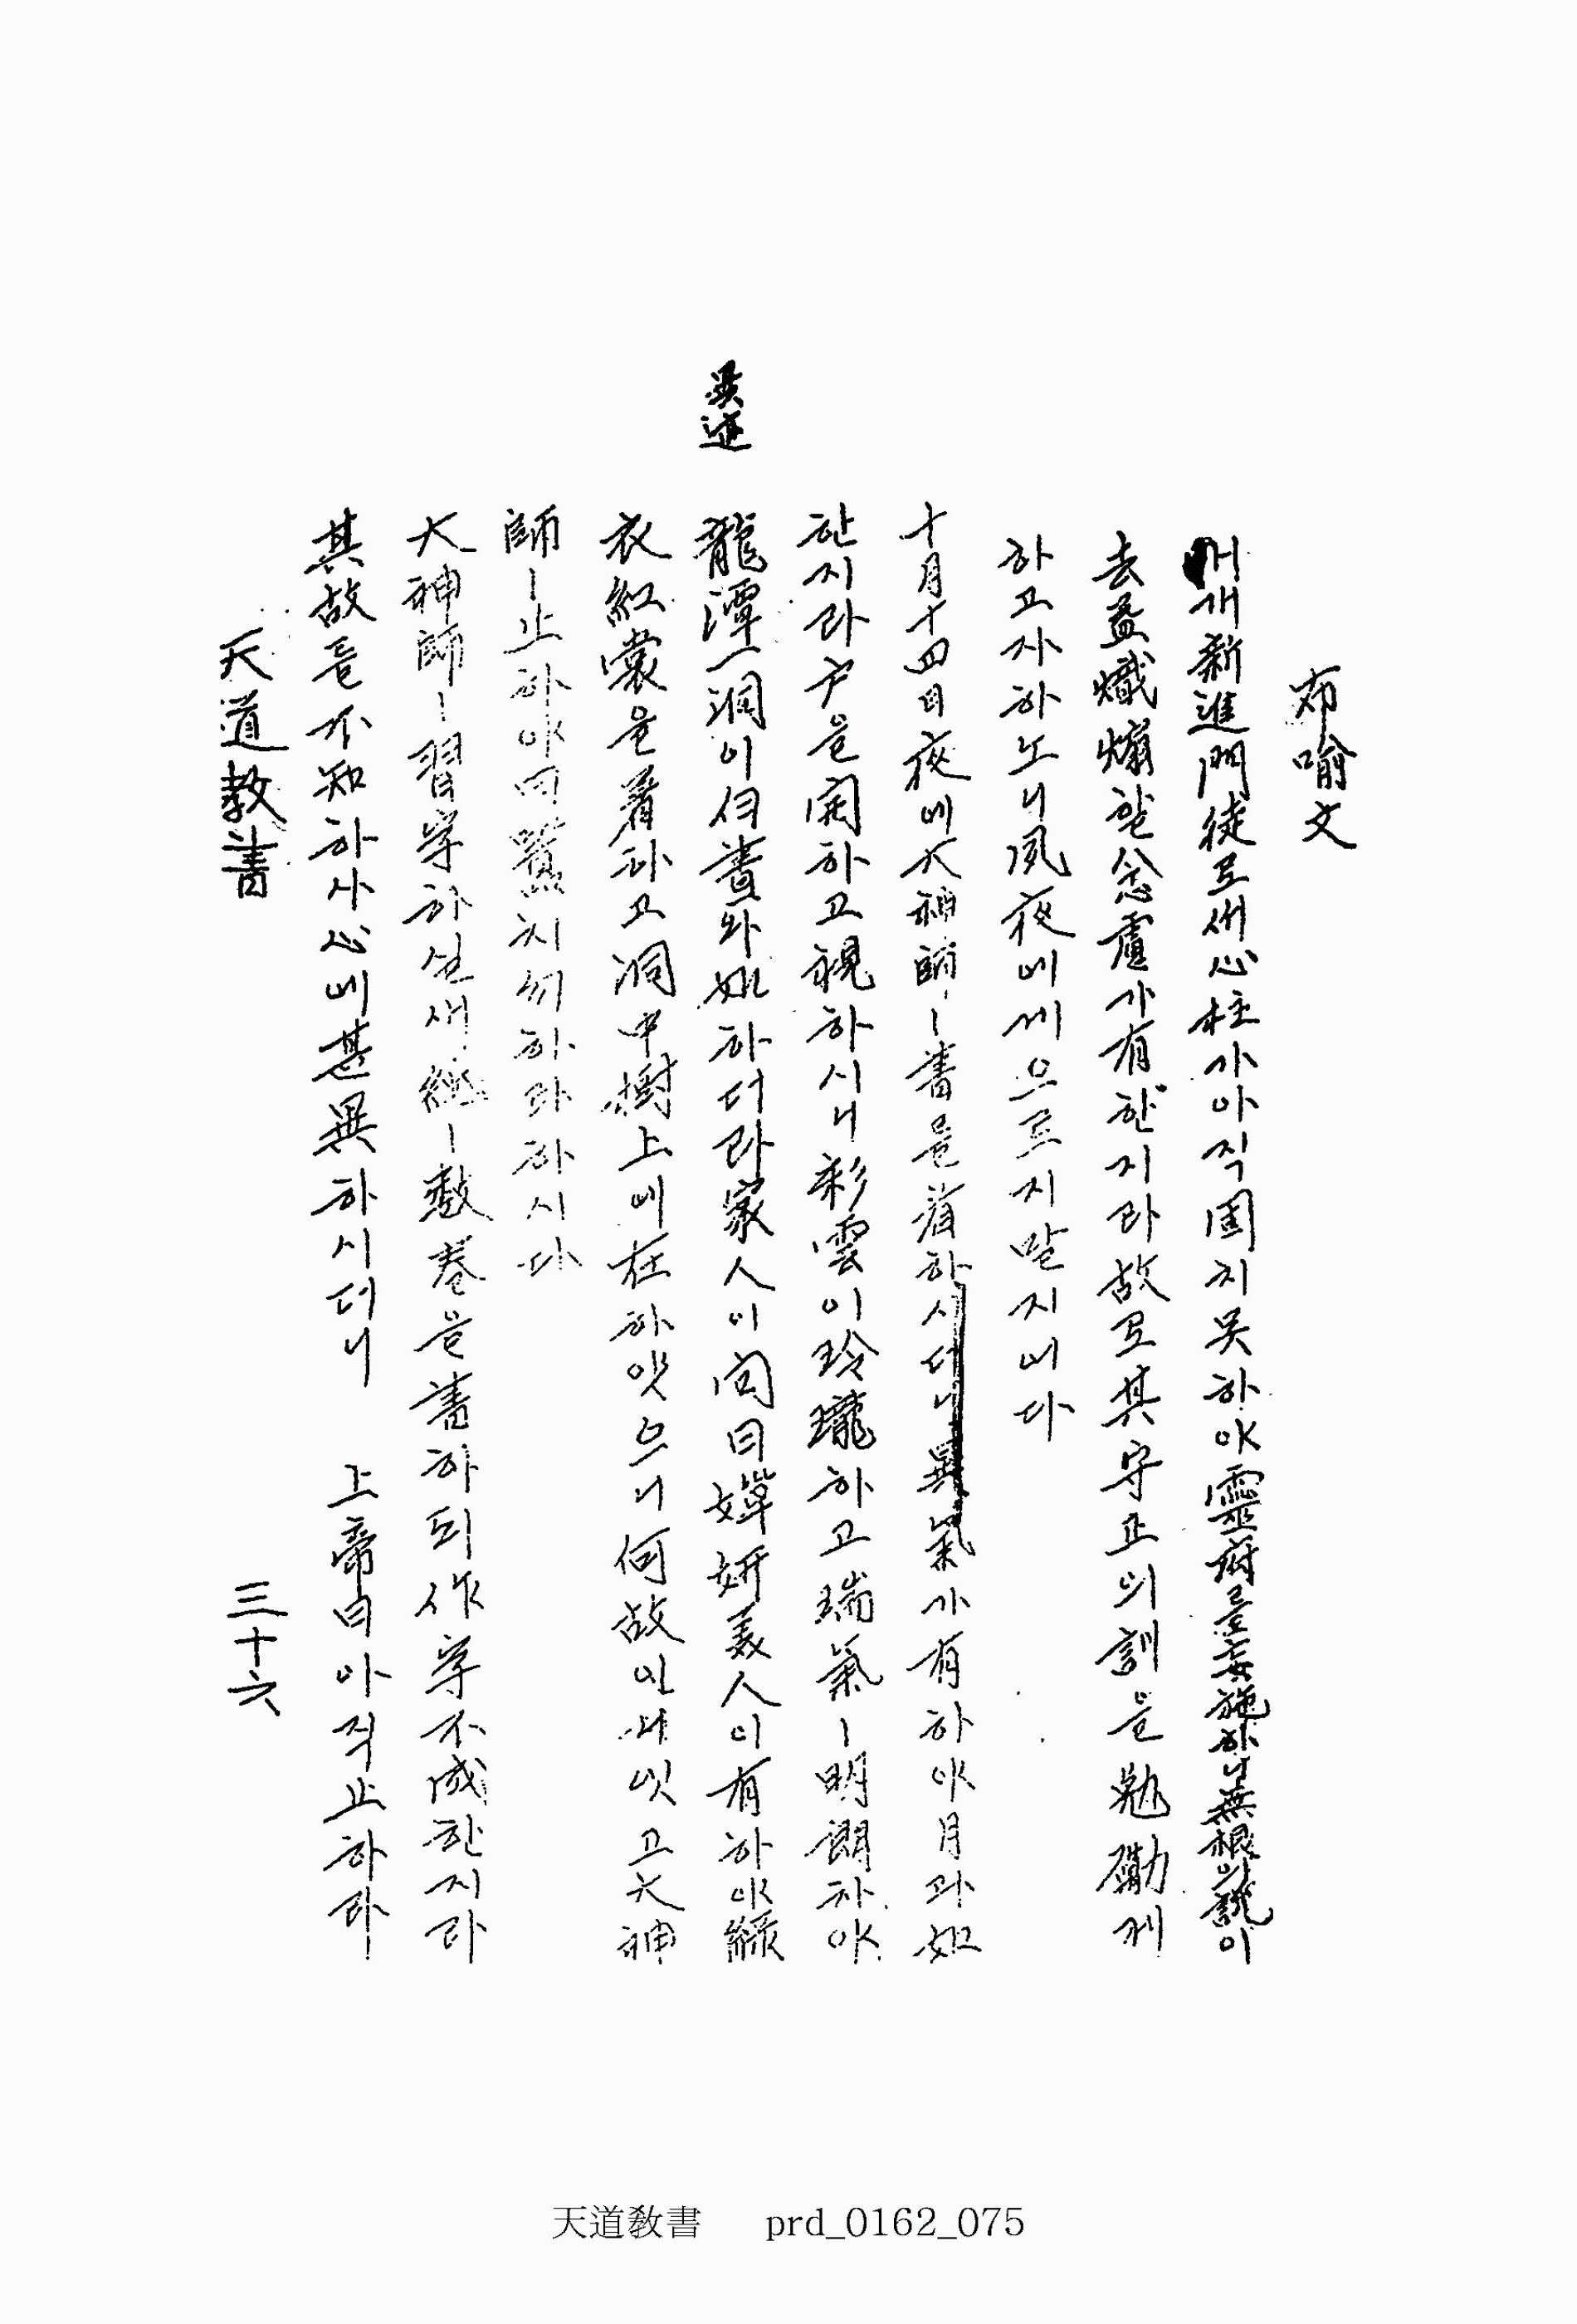 布喩文
개新進門徒로새心柱가아직固치못하야靈符를妄施하니無根의說이
去益熾煽할念慮가有한지라故로其守正의訓을勉勵케
하고자하노니夙夜에게으르지말지어다
十月十四日夜에大神師ㅣ書를看하시더니異氣가有하야月과如
한지라戶을開하고視하시니彩雲이玲瓏하고瑞氣ㅣ明朗하야
異迹
龍潭一洞이白晝와如하더라家人이問曰嬋姸美人이有하야綠
衣紅裳을着하고洞中樹上에在하얏으니何故이니잇고大神
師ㅣ止하야曰驚치勿하라하시다
大神師ㅣ習字하실새紙ㅣ數卷을書하되作字不成한지라
其故를不知하사心에甚異하시더니 上帝曰아직止하라
天道敎書 三十六
天道敎書 prd_0162_075